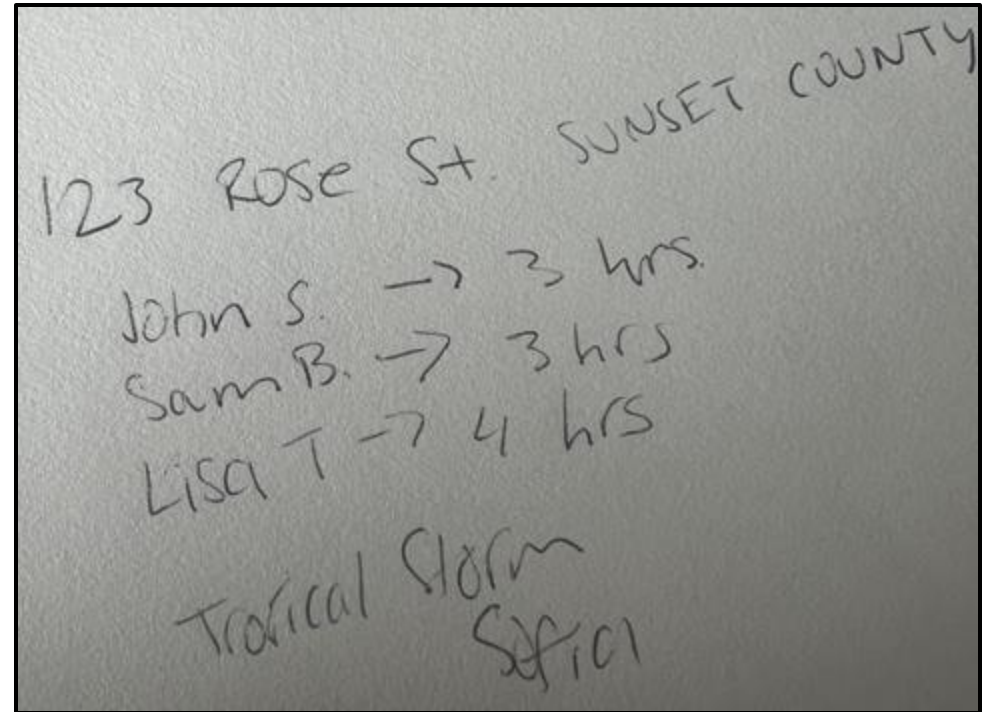 123 Rose St. SUNSET COUNTY
John S. → 3 hrs.
Sam B. → 3 hrs
Lisa T → 4 hrs
Tropical Storm
Sofia